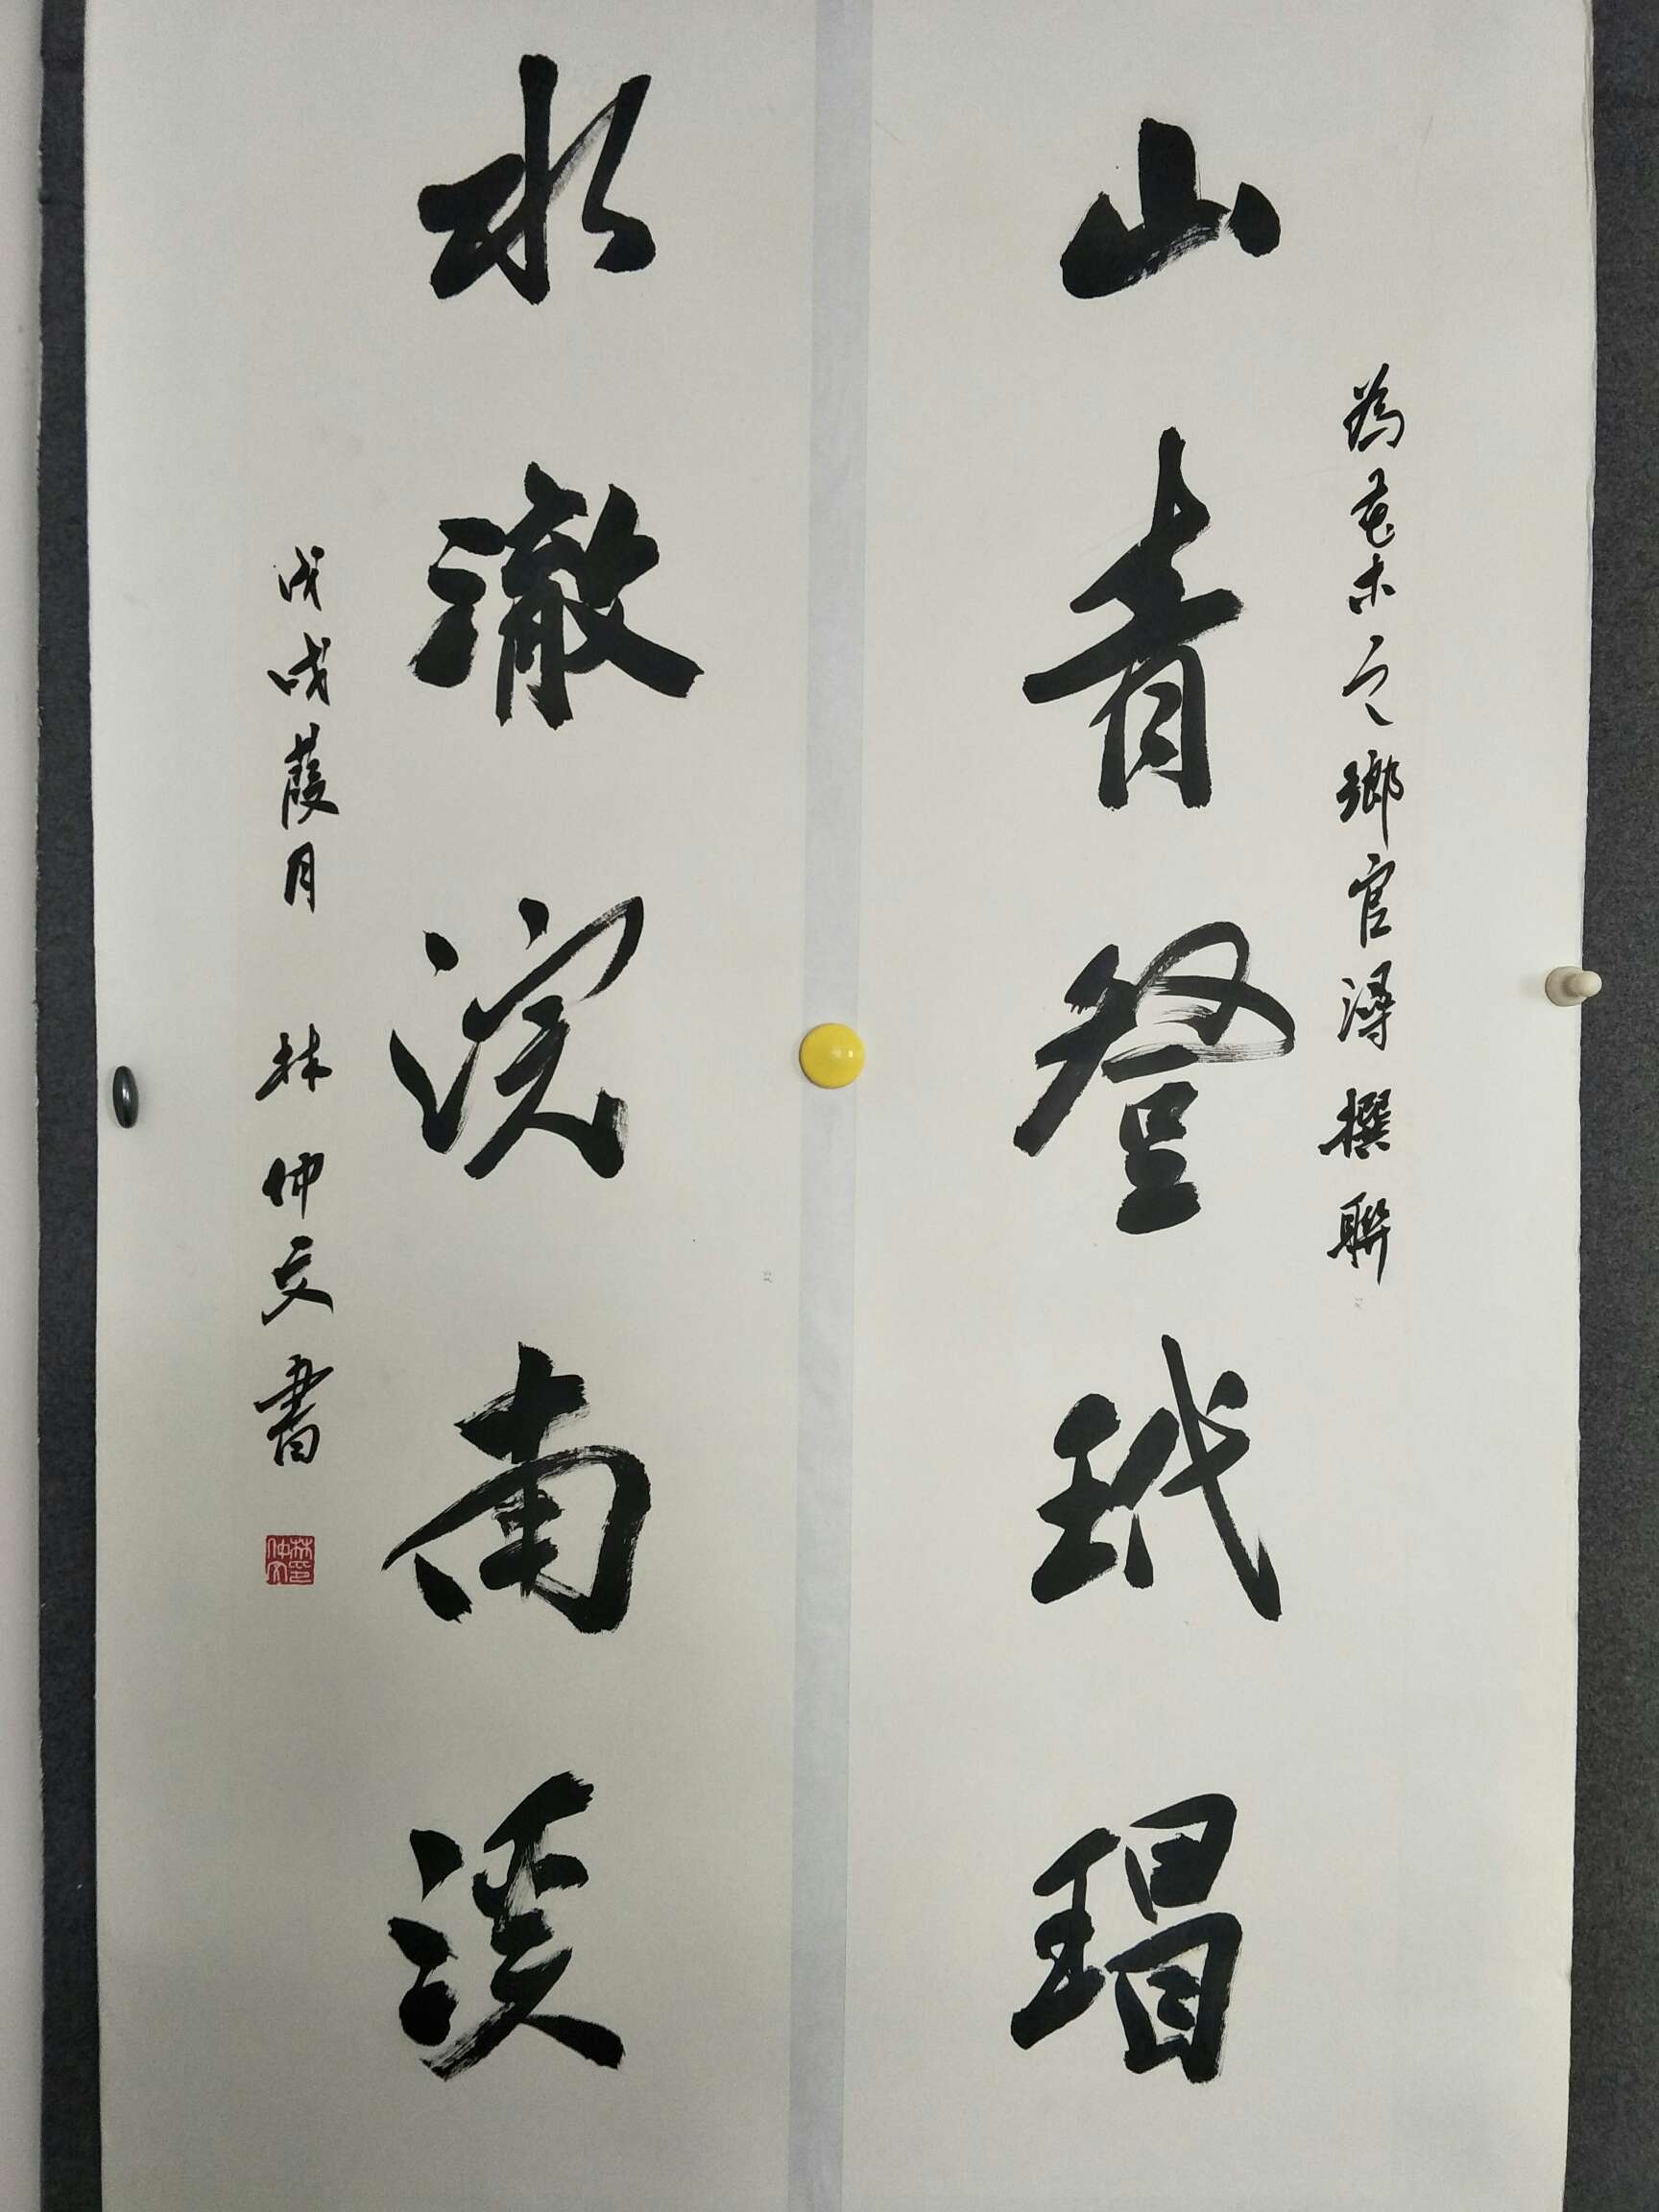 為花木之鄉官潯撰聯
山青登玳瑁
水澈浣南溪
戊戌葭月 林仲文書
林仲文印